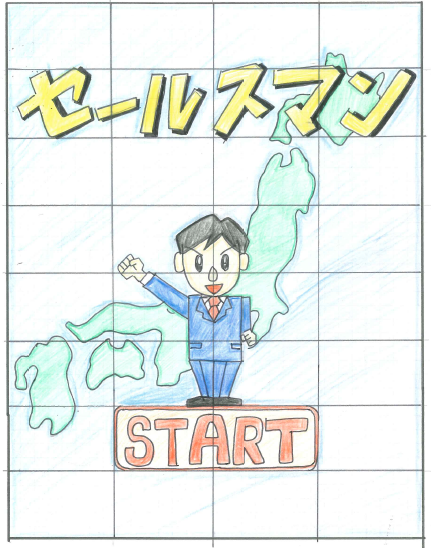 セールスマン
START